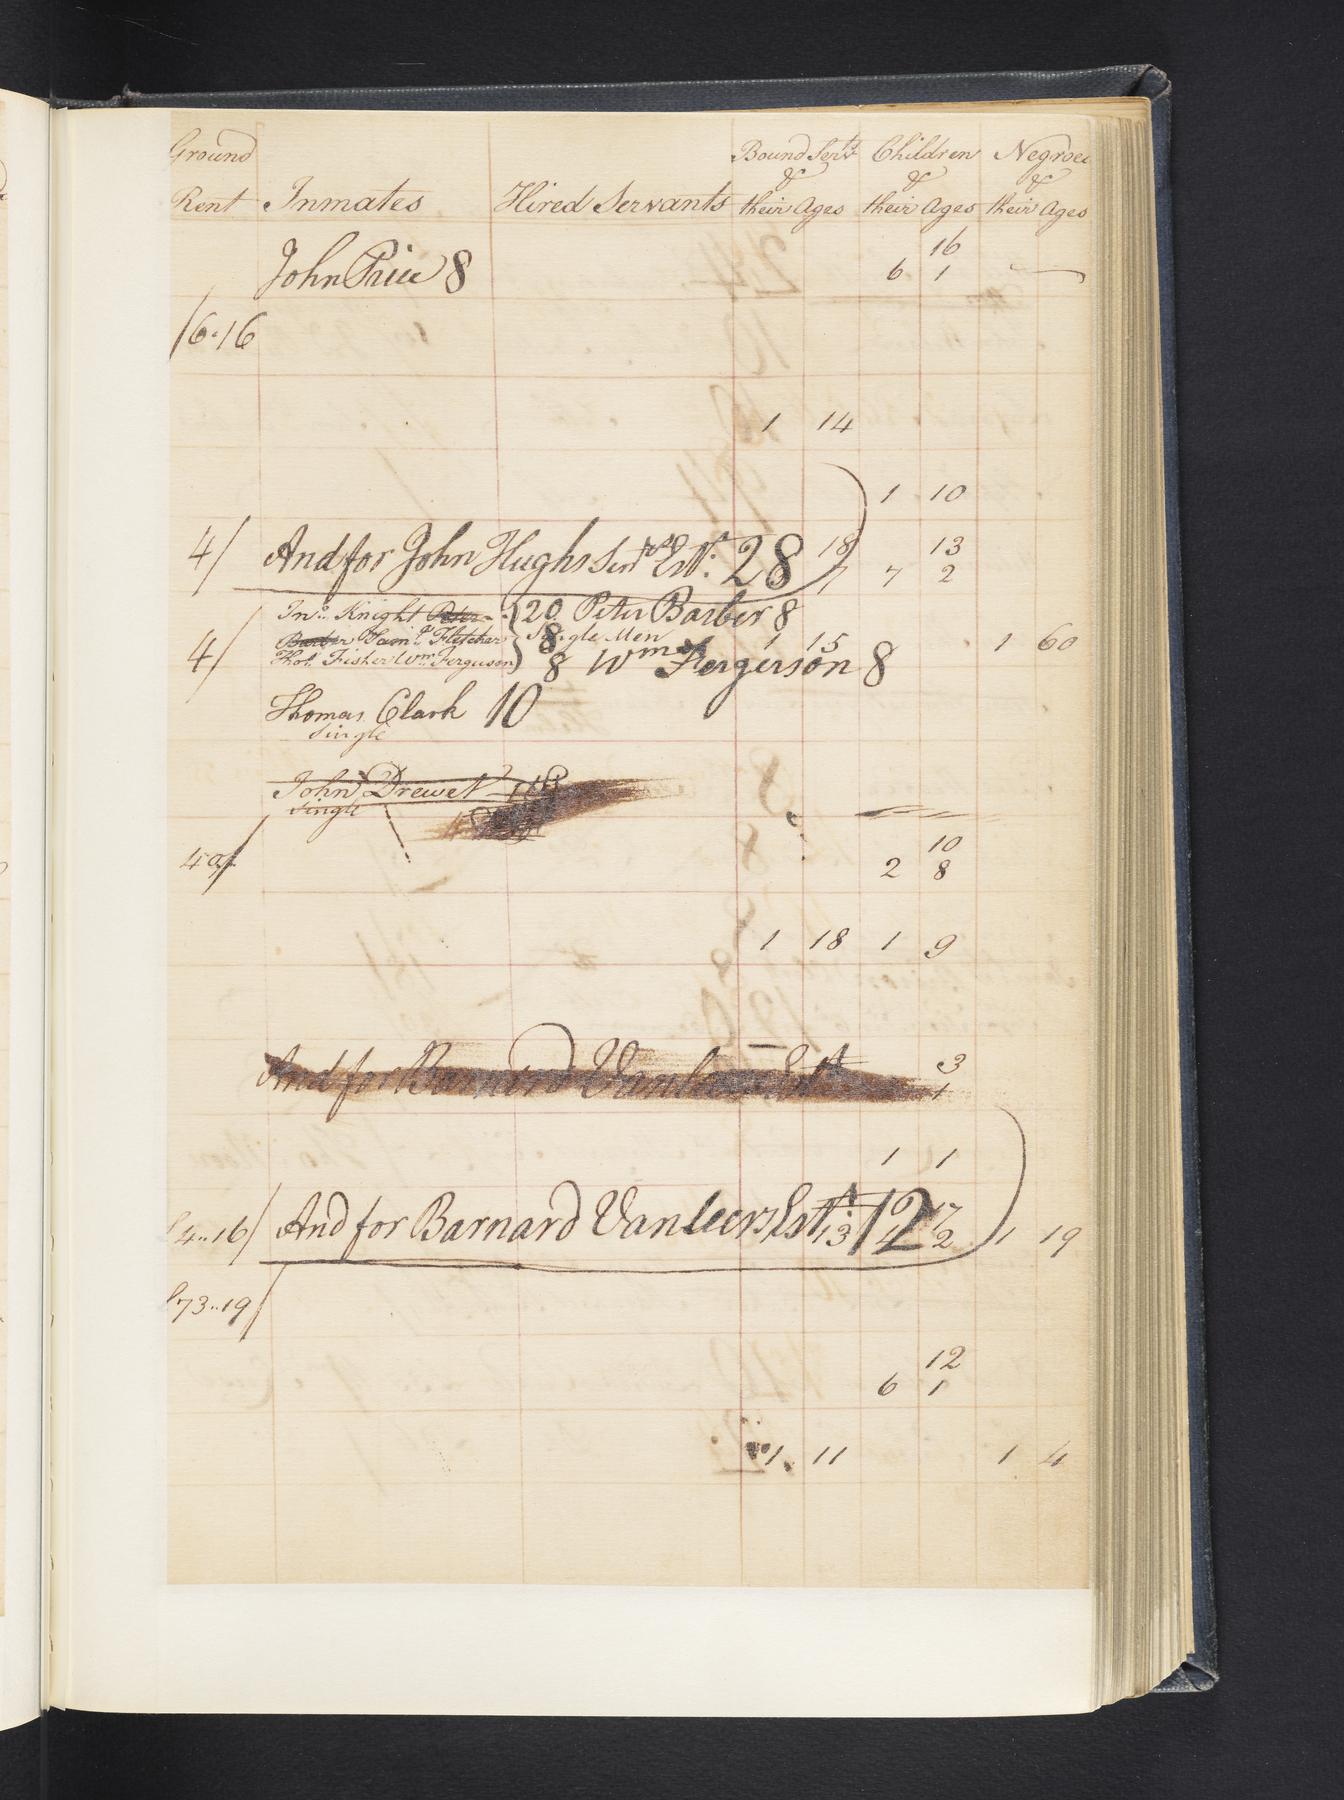 Ground Bound Servts Children Negroes
& & &
Rent Inmates Hired Servants their Ages their Ages their Ages
16
John Price 8 6 1 —
16.16
1 14
1 10
4/ And for John Hughs Senrs Estt. 28 18 13
7 7 2
Jno. Knight Peter 20 Peter Barber 8
Barber Saml. Fletcher 8 Single Men 1 15 1 60
4/ Thos. Fisher Wm. Ferguson 8 Wm Fergerson 8
Thomas Clark 10
Single
John Drewet
Single
10
2 8
1 18 1 9
And for Barnard Vanleers Estt 3
1
1 1
£4..16/ And for Barnard Vanleers Estt. 12 7
13 2 1 19
£73..19/
12
6 1
1 11 1 4